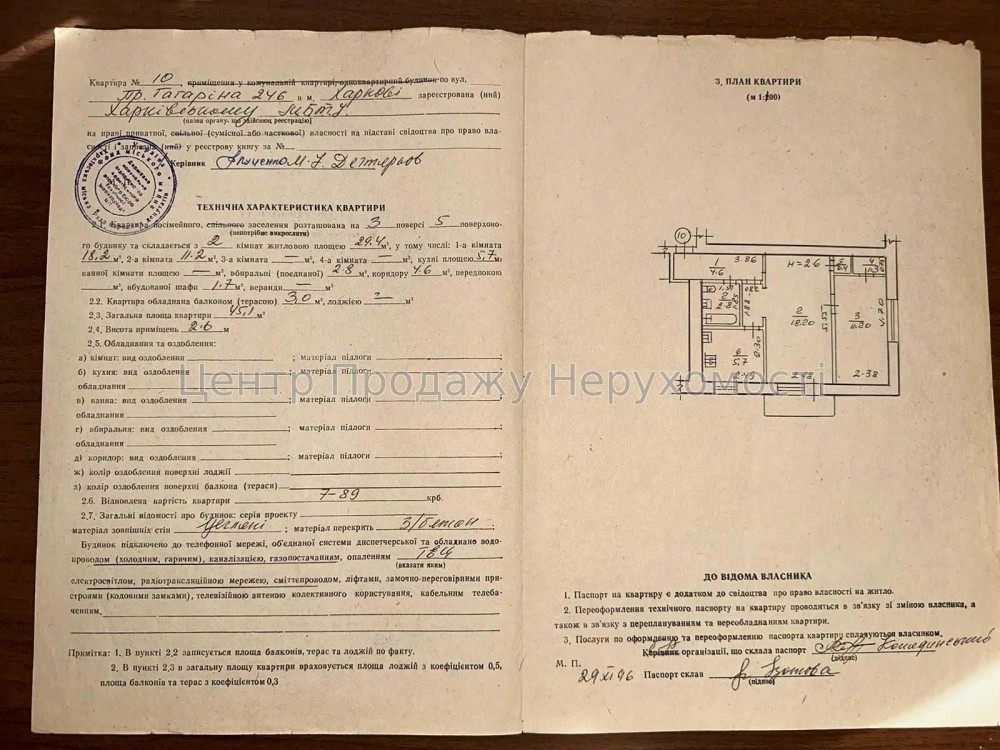 Квартира № 10, приміщення у комунальній квартирі, одноквартирний будинок по вул.
Пр. Гагаріна 246 в м. Харкові зареєстрована (ний)
Харківському МБТІ
(назва органу, що здійснює реєстрацію)
на праві приватної, спільної (сумісної або часткової) власності на підставі свідоцтва про право вла-
сності і записана (ний) у реєстрову книгу за №
Керівник
ТЕХНІЧНА ХАРАКТЕРИСТИКА КВАРТИРИ
посімейного, спільного заселення розташована на 3 поверсі 5 поверхово-
(непотрібне викреслити)
го будинку та складається з 2 кімнат житловою площею 29.4 м², у тому числі: 1-а кімната
18.2 м², 2-а кімната 11.2 м², 3-а кімната — м², 4-а кімната — м², кухні площею 5.7 м²
ванної кімнати площею — м², вбиральні (поєднаної) 2.8 м², коридору 4.6 м², передпокою
м², вбудованої шафи 1.7 м², веранди — м²
2.2. Квартира обладнана балконом (терасою) 3,0 м², лоджією — м²
2.3. Загальна площа квартири 45,1 м²
2.4. Висота приміщень 2.6 м
2.5. Обладнання та оздоблення:
а) кімнат: вид оздоблення ; матеріал підлоги ;
б) кухня: вид оздоблення ; матеріал підлоги
обладнання
в) ванна: вид оздоблення ; матеріал підлоги ;
обладнання
г) вбиральня: вид оздоблення ; матеріал підлоги ;
обладнання
д) коридор: вид оздоблення ; матеріал підлоги ;
ж) колір оздоблення поверхні лоджії
з) колір оздоблення поверхні балкона (тераси)
2.6. Відновлена вартість квартири 7-89 крб.
2.7. Загальні відомості про будинок: серія проекту
матеріал зовнішніх стін цегляні ; матеріал перекрить з/бетон ;
Будинок підключено до телефонної мережі, об'єднаної системи диспетчерської та обладнано водо-
проводом (холодним, гарячим), каналізацією, газопостачанням, опаленням ТЕЦ
(вказати яким)
електросвітлом, радіотрансляційною мережею, сміттєпроводом, ліфтами, замочно-переговірними при-
строями (кодовими замками), телевізійною антеною колективного користування, кабельним телеба-
ченням,
Примітка: 1. В пункті 2,2 записується площа балконів, терас та лоджій по факту.
2. В пункті 2,3 в загальну площу квартири враховується площа лоджій з коефіцієнтом 0,5,
площа балконів та терас з коефіцієнтом 0,3
3. ПЛАН КВАРТИРИ
(м 1:200)
10
1
4.6
3.86
H=2.6
2
18.20
5.53
3
11.20
4.70
6
5,7
2.30
2.45
2.98
2.38
ДО ВІДОМА ВЛАСНИКА
1. Паспорт на квартиру є додатком до свідоцтва про право власності на житло.
2. Переоформлення технічного паспорту на квартиру проводиться в зв'язку зі зміною власника, а
також в зв'язку з переплануванням та переобладнанням квартири.
3. Послуги по оформленню та переоформленню паспорта квартири сплачуються власником.
Керівник організації, що склала паспорт
(підпис)
М. П.
29 XI 96 Паспорт склав
(підпис)
Центр Продажу Нерухомості